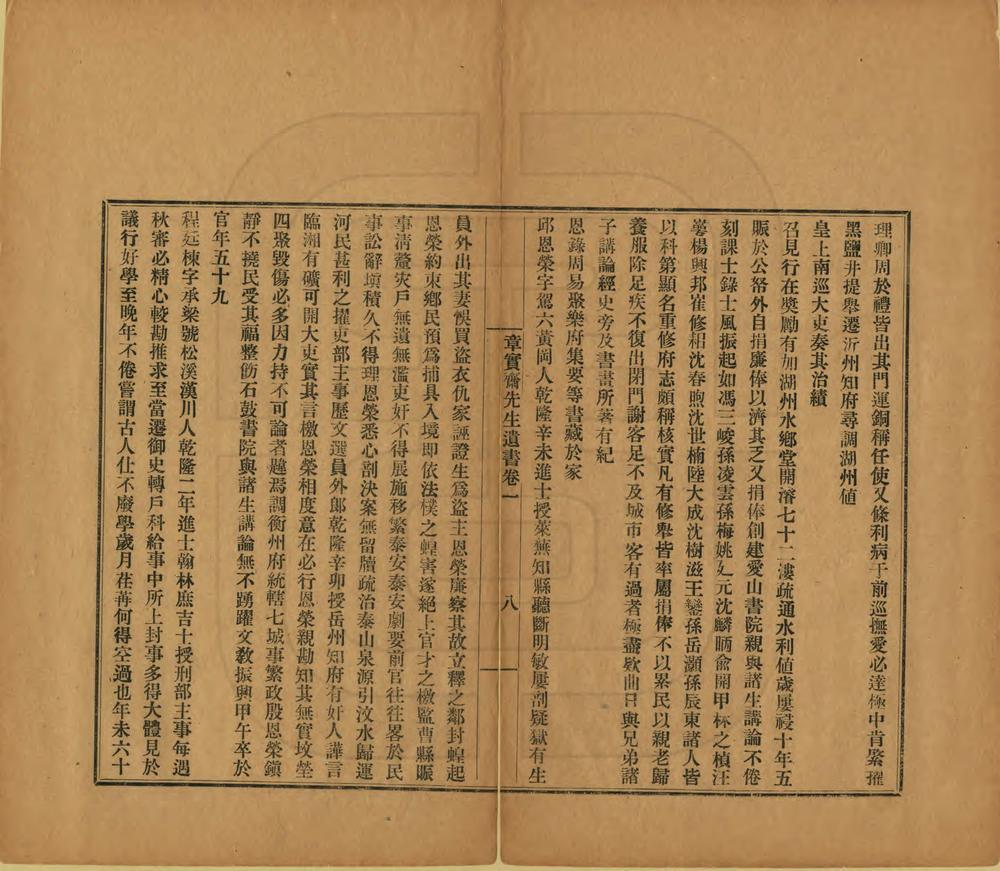 理卿周於禮皆出其門運銅稱任使又條利病于前巡撫愛必達極中肯綮擢
黑鹽井提舉遷沂州知府尋調湖州値
皇上南巡大吏奏其治績
召見行在獎勵有加湖州水鄉堂開濬七十二漊疏通水利値歲屢祲十年五
賑於公帑外自捐廉俸以濟其乏又捐俸創建愛山書院親與諸生講論不倦
刻課士錄士風振起如馮三峻孫凌雲孫梅姚元沈麟昞俞開甲之楨汪
楊興邦崔修柖沈春煦沈世楠陸大成沈樹滋王鑾孫岳灝孫辰東諸人皆
以科第顯名重修府志頗稱核實凡有修舉皆率屬捐俸不以累民以親老歸
養服除足疾不復出閉門謝客足不及城市客有過者極盡欵曲日與兄弟諸
子講論經史旁及書畫所著有紀
恩錄周易聚樂府集要等書藏於家
邱恩榮字駕六黃岡人乾隆辛未進士授萊蕪知縣聽斷明敏屢剖疑獄有生
章實齋先生遺書卷一
八
員外出其妻悞買盜衣仇家誣證生爲盜主恩榮廉察其故立釋之鄰封蝗起
恩榮約束鄉民預爲捕具入境卽依法撲之蝗害遂絕上官才之檄監曹縣賑
事淸釐灾戶無遺無濫吏奸不得展施移繁泰安泰安劇要前官往往畧於民
事訟辭塡積久不得理恩榮悉心剖決案無留牘疏治泰山泉源引汶水歸運
河民甚利之擢吏部主事歷文選員外郎乾隆辛卯授岳州知府有奸人譁言
臨湘有礦可開大吏實其言檄恩榮相度意在必行恩榮親勘知其無實墳塋
四聚毀傷必多因力持不可論者韙焉調衡州府統轄七城事繁政殷恩榮鎭
靜不撓民受其福整飭石鼓書院與諸生講論無不踴躍文敎振興甲午卒於
官年五十九
程廷棟字承梁號松溪漢川人乾隆二年進士翰林庶吉士授刑部主事每遇
秋審必精心較勘推求至當遷御史轉戶科給事中所上封事多得大體見於
議行好學至晚年不倦嘗謂古人仕不廢學歲月荏苒何得空過也年未六十